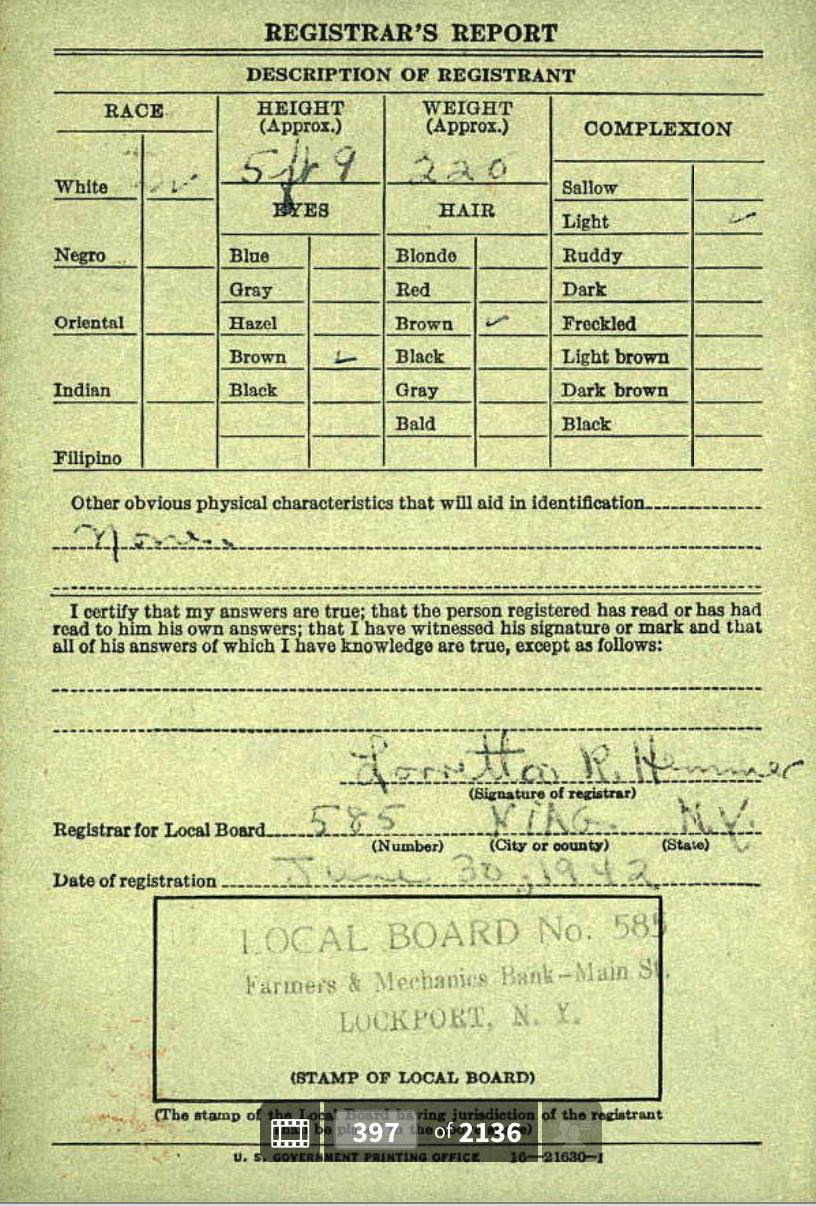 REGISTRAR'S REPORT
DESCRIPTION OF REGISTRANT
RACE
HEIGHT (Approx.)
WEIGHT (Approx.)
COMPLEXION
White ✓
5 ft 9
220
Sallow
EYES
HAIR
Light ✓
Negro
Blue
Blonde
Ruddy
Gray
Red
Dark
Oriental
Hazel
Brown ✓
Freckled
Brown ✓
Black
Light brown
Indian
Black
Gray
Dark brown
Bald
Black
Filipino
Other obvious physical characteristics that will aid in identification
None
I certify that my answers are true; that the person registered has read or has had
read to him his own answers; that I have witnessed his signature or mark and that
all of his answers of which I have knowledge are true, except as follows:
Lorretta R. Hemmer
(Signature of registrar)
Registrar for Local Board 585 NIAG. N.Y.
(Number) (City or county) (State)
Date of registration June 30, 1942
LOCAL BOARD No. 585
Farmers & Mechanics Bank—Main St.
LOCKPORT, N. Y.
(STAMP OF LOCAL BOARD)
(The stamp of the Local Board having jurisdiction of the registrant
397 of 2136
U. S. GOVERNMENT PRINTING OFFICE 16—21630-1